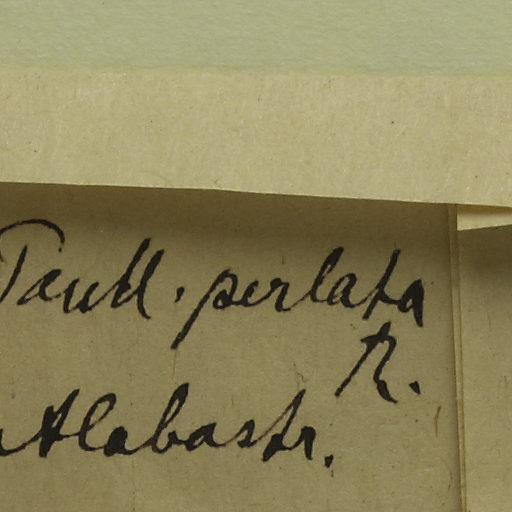 Paull. perlata
R.
Alabastr.